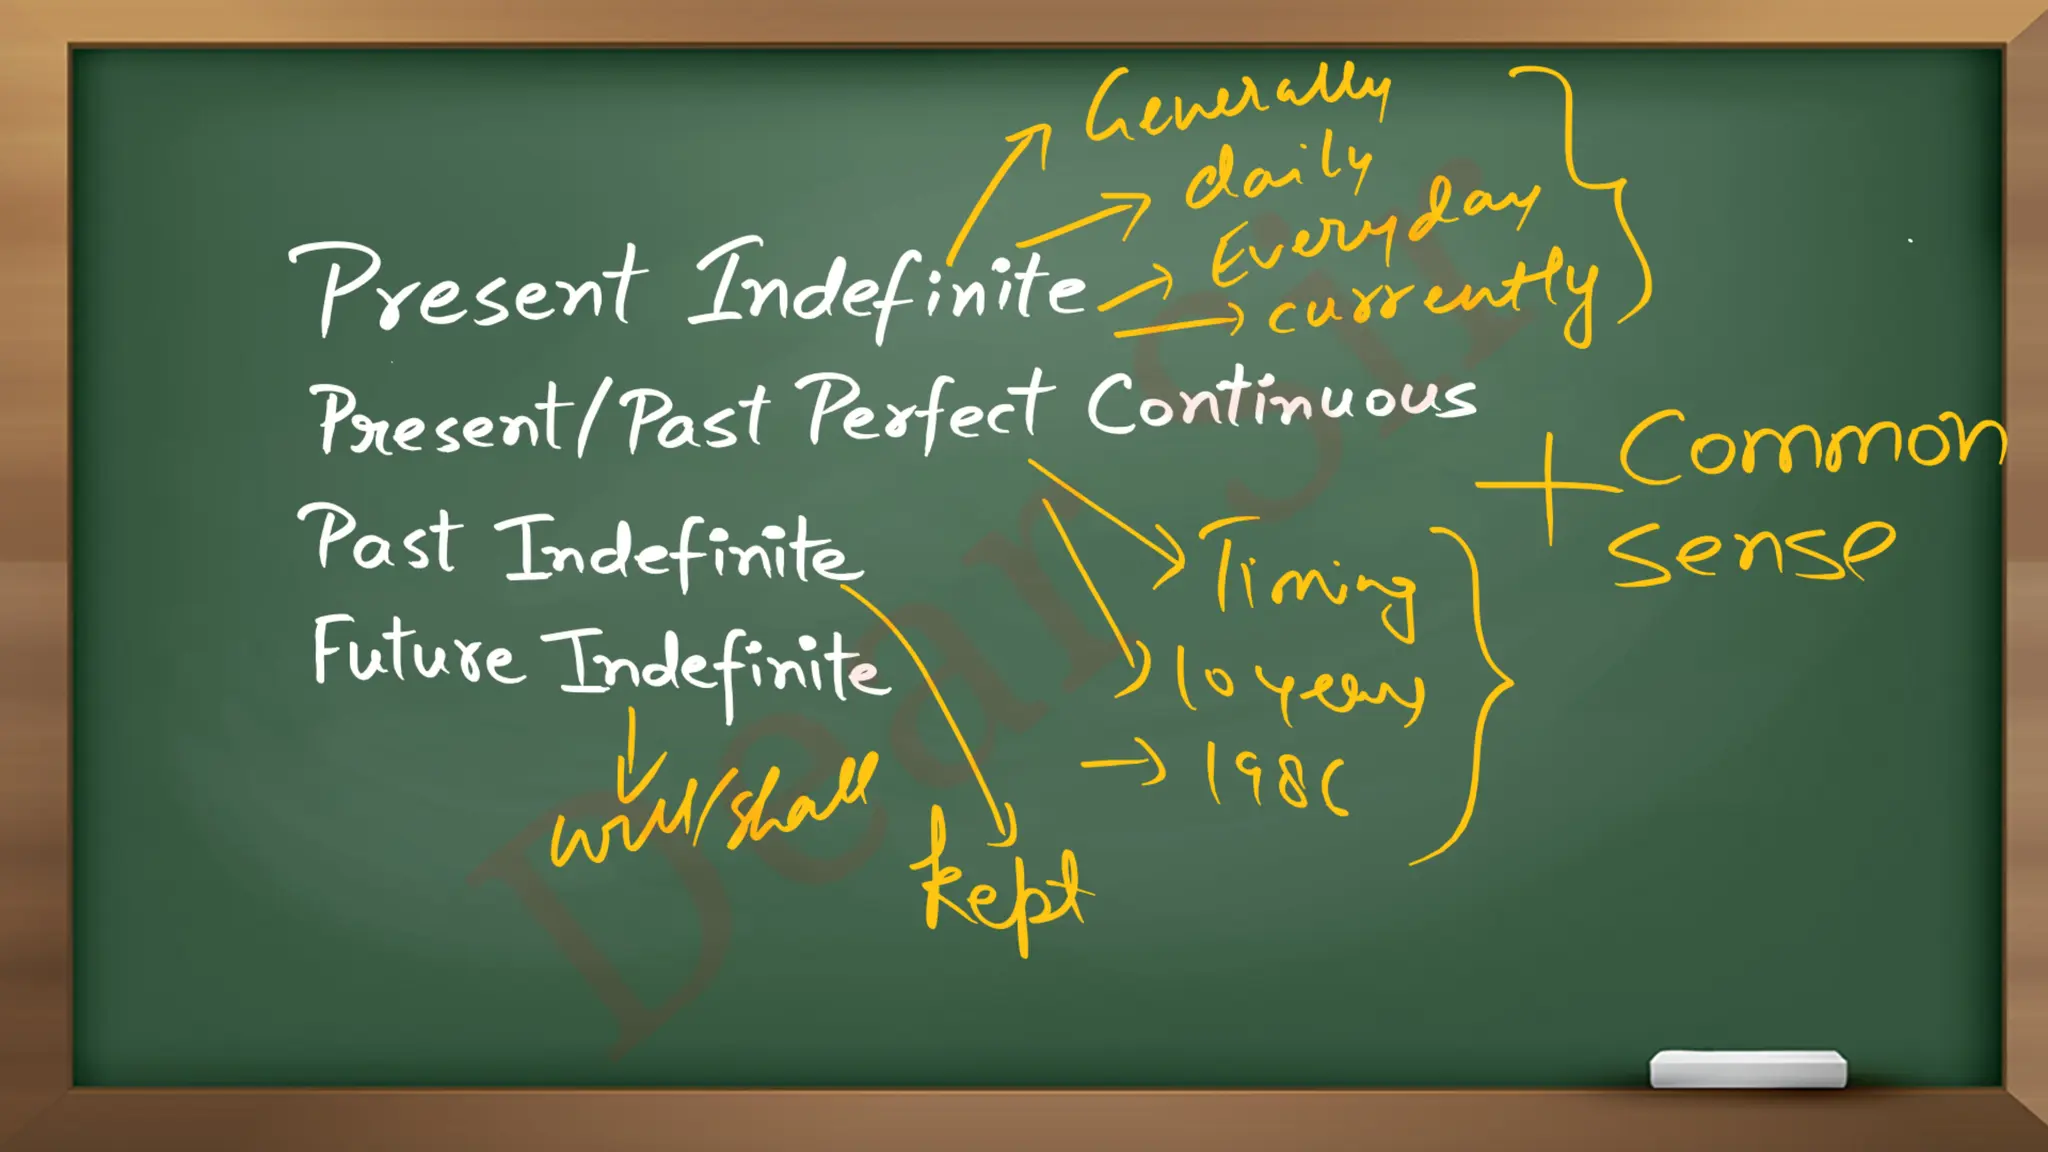 Generally
daily
Everyday
currently
Present Indefinite
Present/Past Perfect Continuous
+ Common
sense
Past Indefinite
Timing
Future Indefinite
10 years
1986
will/shall
kept
Dear Sir